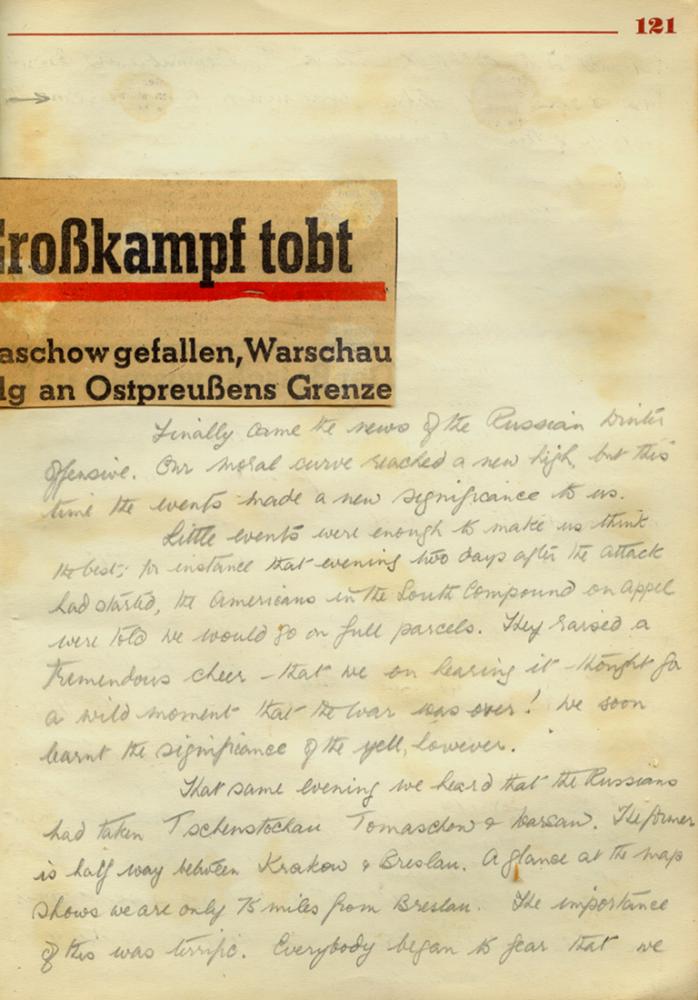 121
Großkampf tobt
aschow gefallen, Warschau
lg an Ostpreußens Grenze
Finally came the news of the Russian Winter
offensive. Our moral curve reached a new high, but this
time the events made a new significance to us.
Little events were enough to make us think
the best; for instance that evening two days after the attack
had started, the Americans in the South Compound on appel
were told we would go on full parcels. They raised a
tremendous cheer - that we on hearing it thought for
a wild moment that the war was over! We soon
learnt the significance of the yell, however.
That same evening we heard that the Russians
had taken Tschenstochau Tomaschow & Warsaw. The former
is half way between Krakow & Breslau. A glance at the map
shows we are only 75 miles from Breslau. The importance
of this was terrific. Everybody began to fear that we